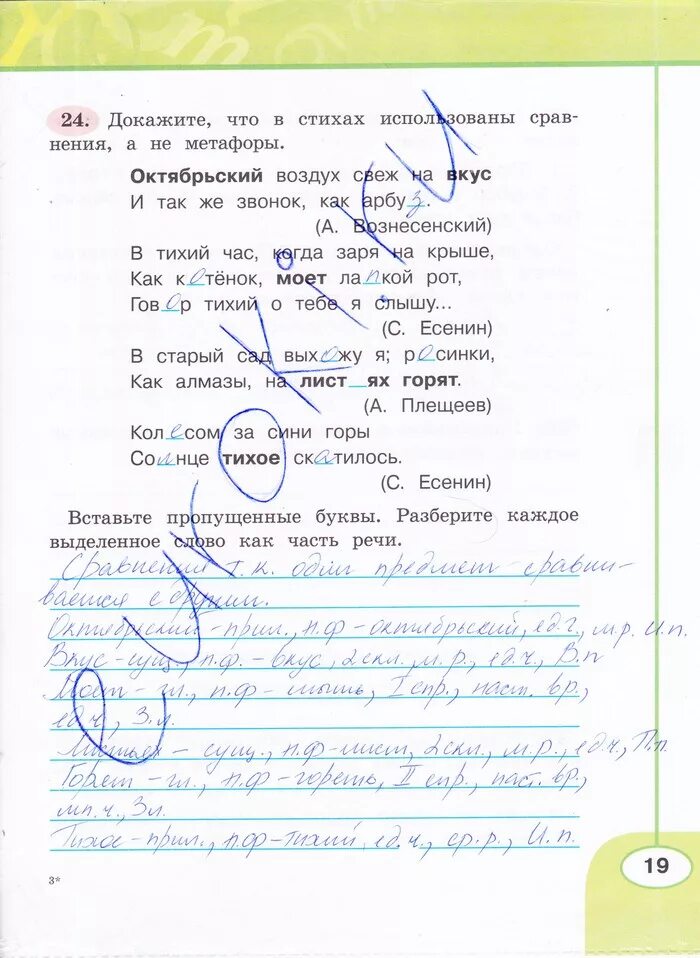 24. Докажите, что в стихах использованы срав-
нения, а не метафоры.
Октябрьский воздух свеж на вкус
И так же звонок, как арбуз.
(А. Вознесенский)
В тихий час, когда заря на крыше,
Как котёнок, моет лапкой рот,
Говор тихий о тебе я слышу...
(С. Есенин)
В старый сад выхожу я; росинки,
Как алмазы, на лист_ях горят.
(А. Плещеев)
Колесом за сини горы
Солнце тихое скатилось.
(С. Есенин)
Вставьте пропущенные буквы. Разберите каждое
выделенное слово как часть речи.
Сравнения т.к. один предмет сравни-
вается с другим.
Октябрьский - прил., н.ф - октябрьский, ед.ч., м.р. И.п.
Вкус - сущ., н.ф. - вкус, 2 скл., м.р., ед.ч., В.п
Моет - гл., н.ф - мыть, I спр., наст. вр.,
ед.ч., 3 л.
Листьях - сущ., н.ф - лист, 2 скл., м.р., ед.ч., П.п.
Горят - гл., н.ф - гореть, II спр., наст. вр.,
мн.ч., 3 л.
Тихое - прил., н.ф - тихий, ед.ч., ср.р., И.п.
19
3*